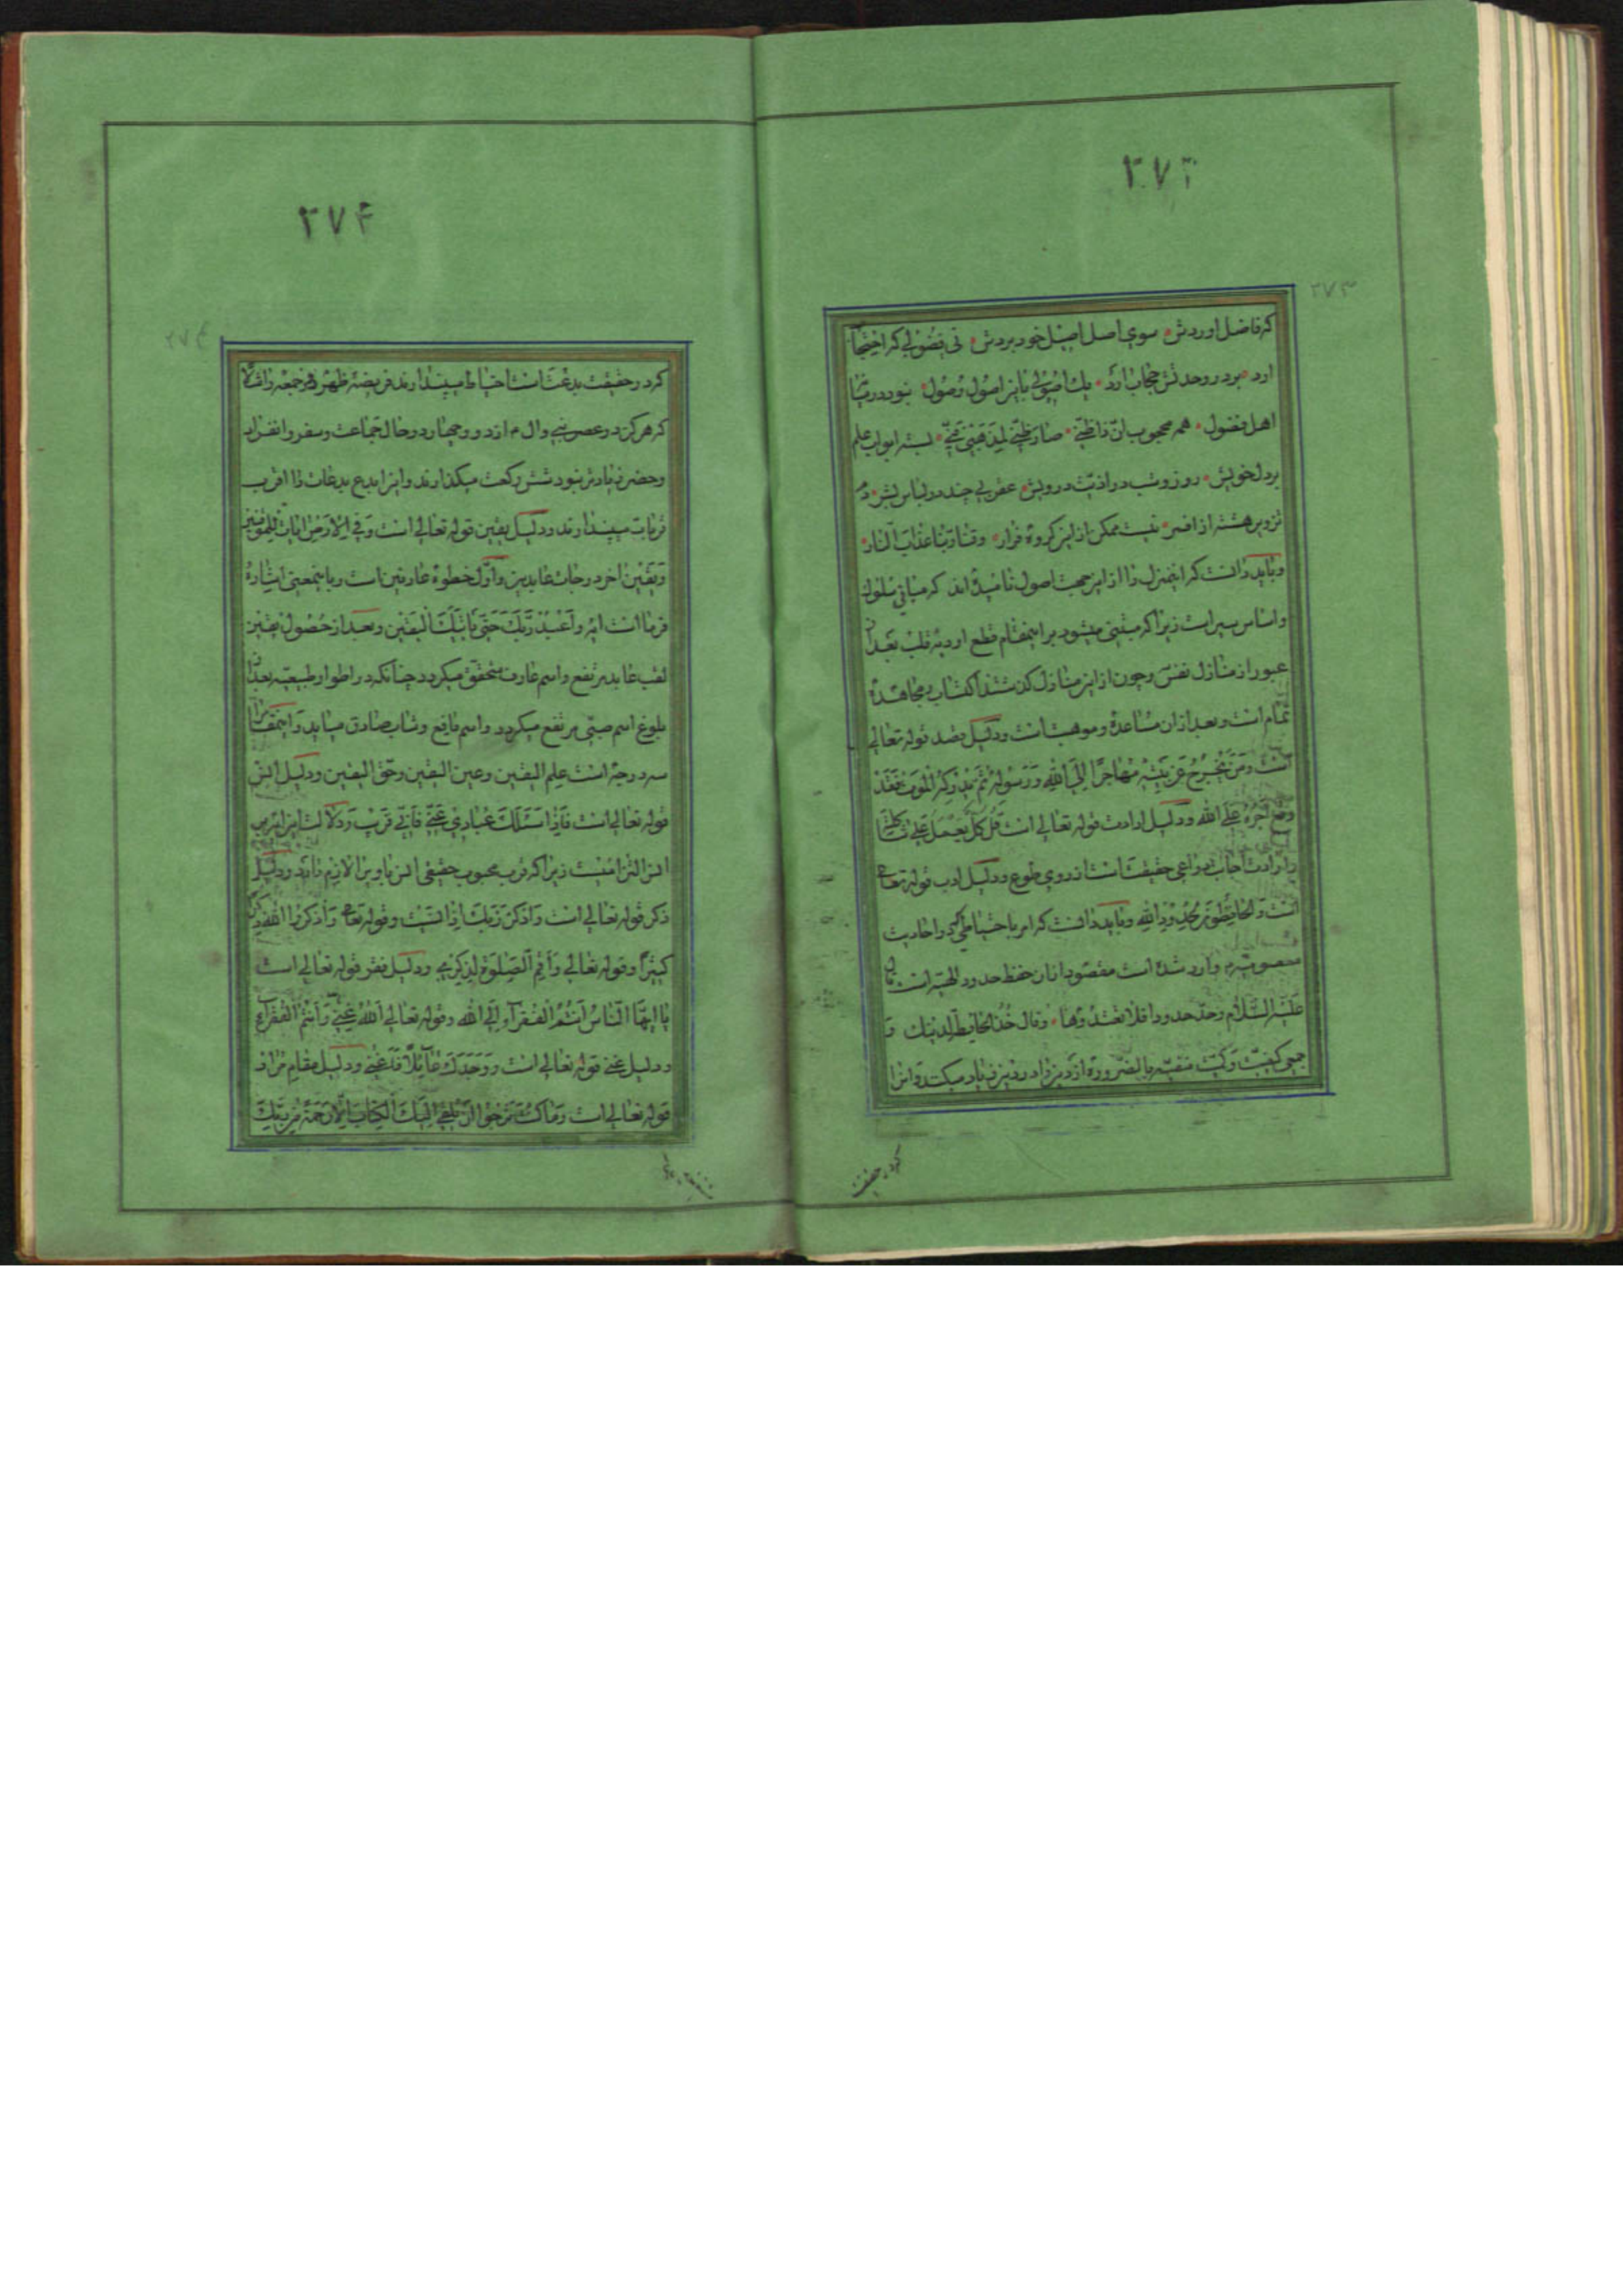 ۲۷۳
۲۷۳
که فاضل اوردش سوی اصل اصیل خود بردش نی فضولی که احتجاب
ارد بر در وحدتش حجاب ارد یك اصولی باین اصول وصول نبود در میان
اهل فضول همه محجوب انّ ذا ظنّی صار ظنّی لمذهبی بسته ابواب علم
بر دل خویش روز و شب در اذیّت درویش عقربی چند در لباس بشر دم
تزویر هشته از افسر نیست ممکن از این کروه فرار وقنا ربّنا عذاب النّار
و بباید دانست که اینمنزل را از این جهت اصول نامیده اند که مبانی سلوك
و اساس سیر است زیرا که مبتنی میشود بر اینمقام قطع اودیه قلب بعد از
عبور از منازل نفس و چون از این منازل کذشتند اکتساب و مجاهده
تمام است و بعد از ان مساعده و موهبت است و دلیل قصد قوله تعالی
است وَمَنْ يَخْرُجْ عَنْ بَيْتِهِ مُهَاجِرًا اِلَى اللهِ وَرَسُولِهِ ثُمَّ يُدْرِكْهُ الْمَوْتُ فَقَدْ
وقع اَجْرُهُ عَلَى الله و دلیل ارادت قوله تعالی است قُلْ كُلٌّ يَعْمَلُ عَلَى شاكلته
و ارادت اجابت دواعی حقیقت است از روی طوع و دلیل ادب قوله تعالی
است وَالْحَافِظُونَ لِحُدُودِ اللهِ و بباید دانست که امر باحتیاطی که در احادیث
معصومیّه وارد شده است مقصود از ان حفظ حدود الهیّه است قال
عَلَیْهِ السَّلام وحدّ حدودا فلا تعتدوها وقال خُذْ الحائطة لدینك و
جمعی کیفیّت و کمیّت متعیّنه بالضّروره از دین را در دین زیاد میکنند و انرا
کرد رحقیقت
۲۷۴
۲۷۴
کرد در حقیقت بدعت است احتیاط میپندارند فریضه ظهر روز جمعه را مثلا
که هرکز در عصر نبی وال م از دو و چهار در حال جماعت و سفر و انفراد
و حضر زیادتر نبود شش رکعت میکذارند و این ابدع بدعات را اقرب
قربات میپندارند و دلیل یقین قوله تعالی است وَفِي الْاَرْضِ اٰيَاتٌ لِلْمُوقِنِينَ
و یَقین اخر درجات عابدین و اوّل خطوهٔ عارفین است و باینمعنی اشاره
فرما است ایه وَاعْبُدْ رَبَّكَ حَتّٰى يَأْتِيَكَ الْيَقِين و بعد از حصول یقین
لقب عابد مرتفع و اسم عارف متحقّق میکردد چنانکه در اطوار طبیعیّه بعد از
بلوغ اسم صبیّ مرتفع میکردد و اسم یافع و شاب صادق میاید و اینمقام را
سه درجه است علم الیقین و عین الیقین و حقّ الیقین و دلیل انس
قوله تعالی است فَاِذَا سَئَلَكَ عِبَادِي عَنِّي فَاِنِّي قَرِيبٌ و دلالت این ایه بر
انس التزامیست زیرا که قرب محبوب حقیقی انس باو را لازم دارد و دلیل
ذکر قوله تعالی است وَاذْكُرْ رَبَّكَ اِذَا نَسِيتَ وقوله تعالی وَاذْكُرُوا اللهَ ذِكْرًا
كَثِيرًا وقوله تعالی وَاَقِمِ الصَّلٰوةَ لِذِكْرِي و دلیل فقر قوله تعالی است
يَا اَيُّهَا النَّاسُ اَنْتُمُ الْفُقَرَآءُ اِلَى الله وقوله تعالی اَللهُ الْغَنِيُّ وَاَنْتُمُ الْفُقَرَآءُ
و دلیل غنی قوله تعالی است وَوَجَدَكَ عَآئِلًا فَاَغْنٰى و دلیل مقام مراد
قوله تعالی است وَمَا كُنْتَ تَرْجُوا اَنْ يُلْقٰى اِلَيْكَ الْكِتَابُ اِلَّا رَحْمَةً مِنْ رَبِّكَ